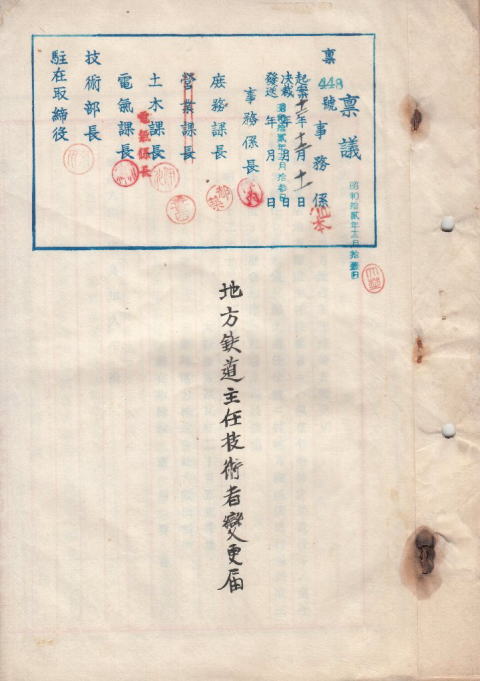 稟議
稟448號
事務係
起案十二年十二月十一日
決裁 年 月 日
發送 年 月 日
事務係長
庶務課長
營業課長
土木課長
電氣係長
電氣課長
技術部長
駐在取締役
地方鉄道主任技術者變更届